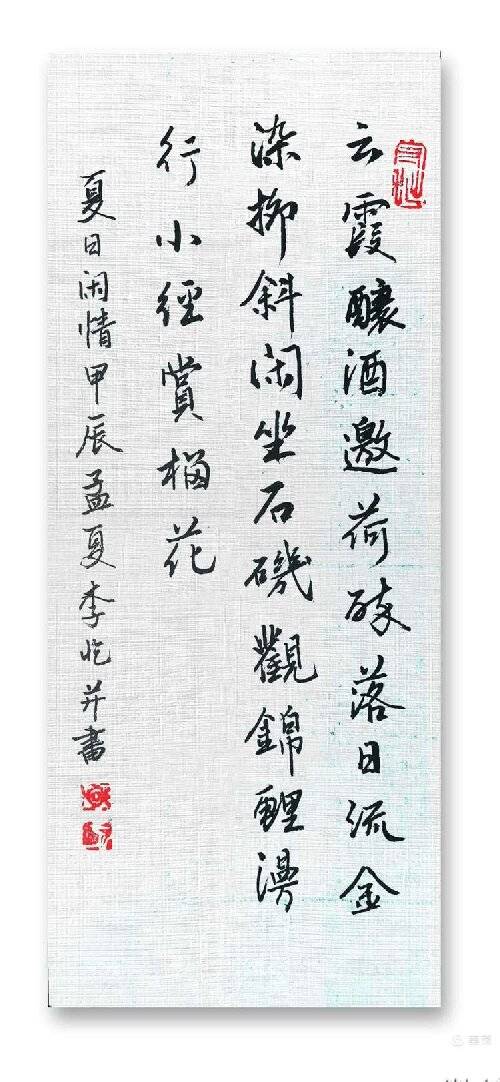 云霞釀酒邀荷醉落日流金
染柳斜闲坐石磯觀錦鯉漫
行小徑賞榴花
夏日闲情甲辰孟夏李并書